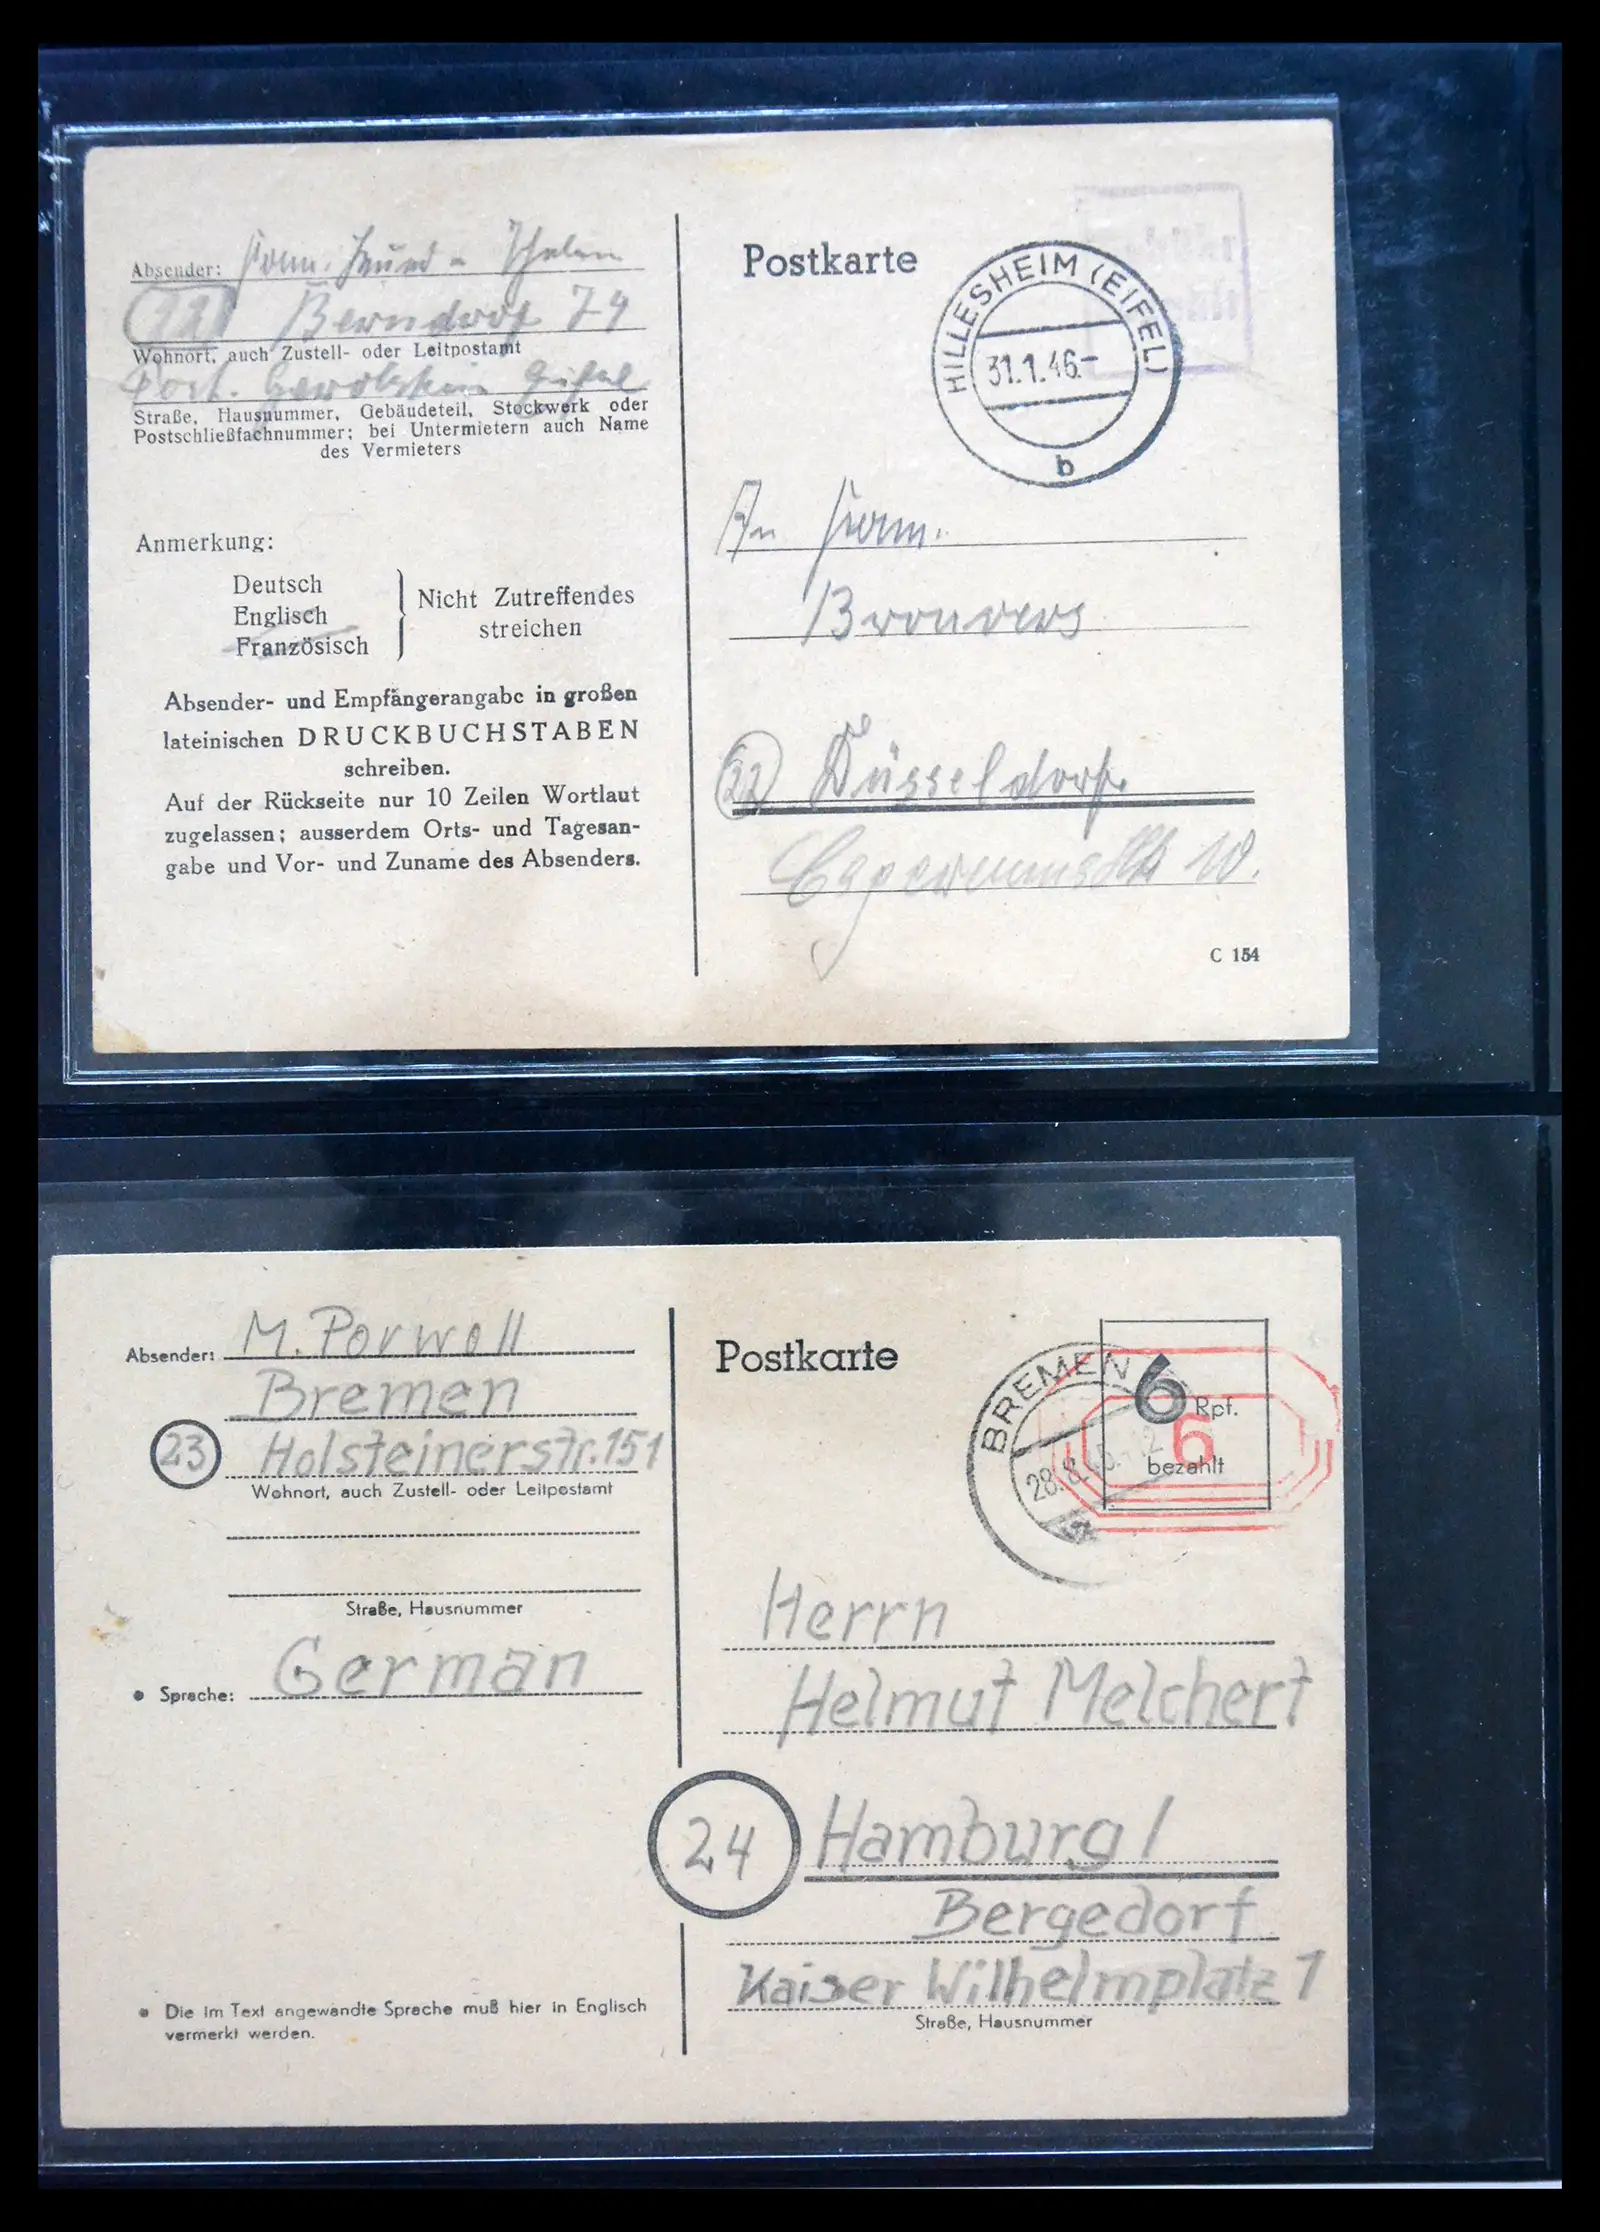 Absender:
Berndorf 74
Wohnort, auch Zustell- oder Leitpostamt
Post. Gerolstein Eifel
Straße, Hausnummer, Gebäudeteil, Stockwerk oder
Postschließfachnummer; bei Untermietern auch Name
des Vermieters
Anmerkung:
Deutsch
Englisch
Französisch
Nicht Zutreffendes
streichen
Absender- und Empfängerangabe in großen
lateinischen DRUCKBUCHSTABEN
schreiben.
Auf der Rückseite nur 10 Zeilen Wortlaut
zugelassen; ausserdem Orts- und Tagesan-
gabe und Vor- und Zuname des Absenders.
Postkarte
HILLESHEIM (EIFEL)
31.1.46.-
b
An Fam.
Bronders
(22) Düsseldorf.
10.
C 154
Absender: M. Porwoll
Bremen
23 Holsteinerstr. 151
Wohnort, auch Zustell- oder Leitpostamt
Straße, Hausnummer
• Sprache: German
• Die im Text angewandte Sprache muß hier in Englisch
vermerkt werden.
Postkarte
BREMEN
28.8.45.-12
6 Rpf.
6
bezahlt
Herrn
Helmut Melchert
24 Hamburg 1
Bergedorf
Kaiser Wilhelmplatz 1
Straße, Hausnummer